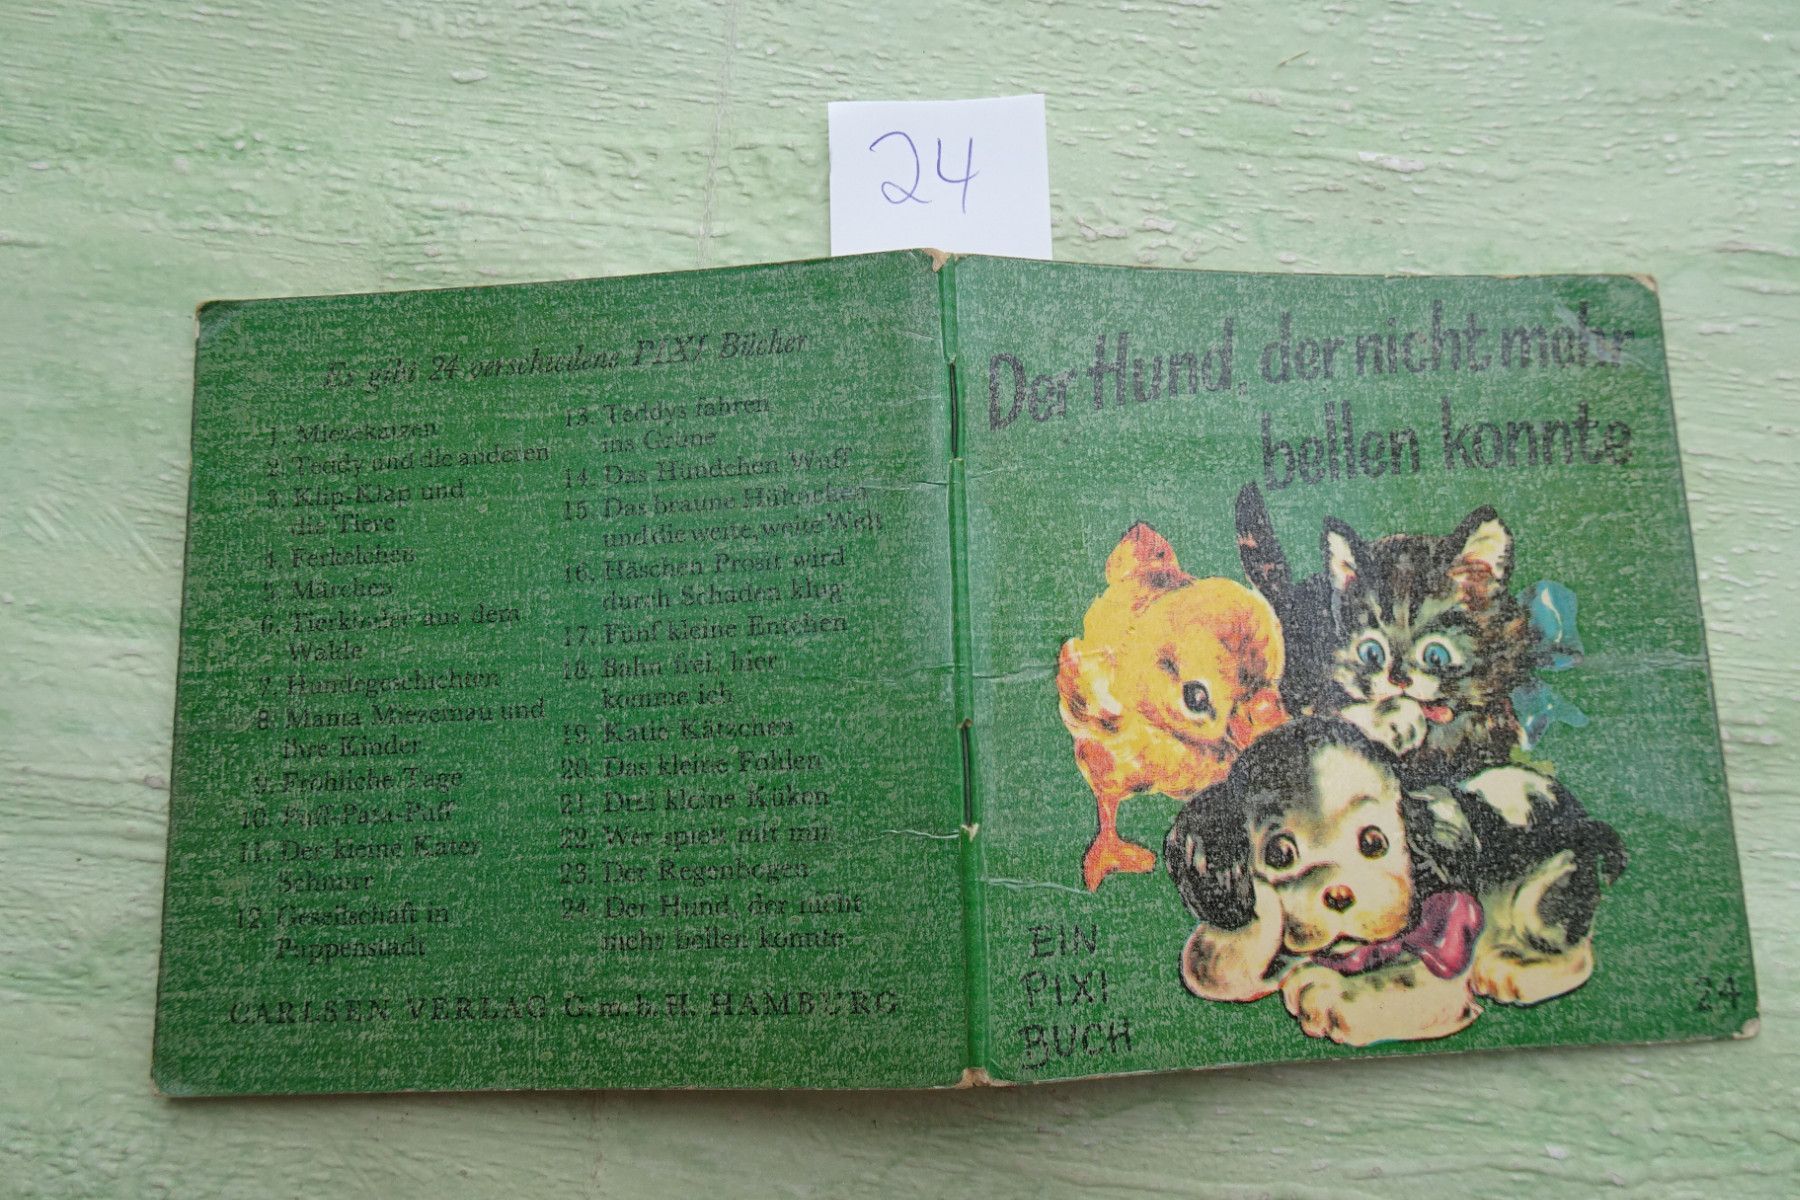 24
Es gibt 24 verschiedene PIXI Bücher
1. Miezekatzen
2. Teddy und die anderen
3. Klip-Klap und
die Tiere
4. Ferkelchen
5. Märchen
6. Tierkinder aus dem
Walde
7. Hundegeschichten
8. Mama Miezemau und
ihre Kinder
9. Fröhliche Tage
10. Puff-Pata-Puff
11. Der kleine Kater
Schnurr
12. Gesellschaft in
Puppenstadt
13. Teddys fahren
ins Grüne
14. Das Hündchen Wuff
15. Das braune Hühnchen
und die weite, weite Welt
16. Häschen Prosit wird
durch Schaden klug
17. Fünf kleine Entchen
18. Bahn frei, hier
komme ich
19. Katie Kätzchen
20. Das kleine Fohlen
21. Drei kleine Küken
22. Wer spielt mit mir
23. Der Regenbogen
24. Der Hund, der nicht
mehr bellen konnte
CARLSEN VERLAG G.m.b.H. HAMBURG
Der Hund, der nicht mehr
bellen konnte
EIN
PIXI
BUCH
24